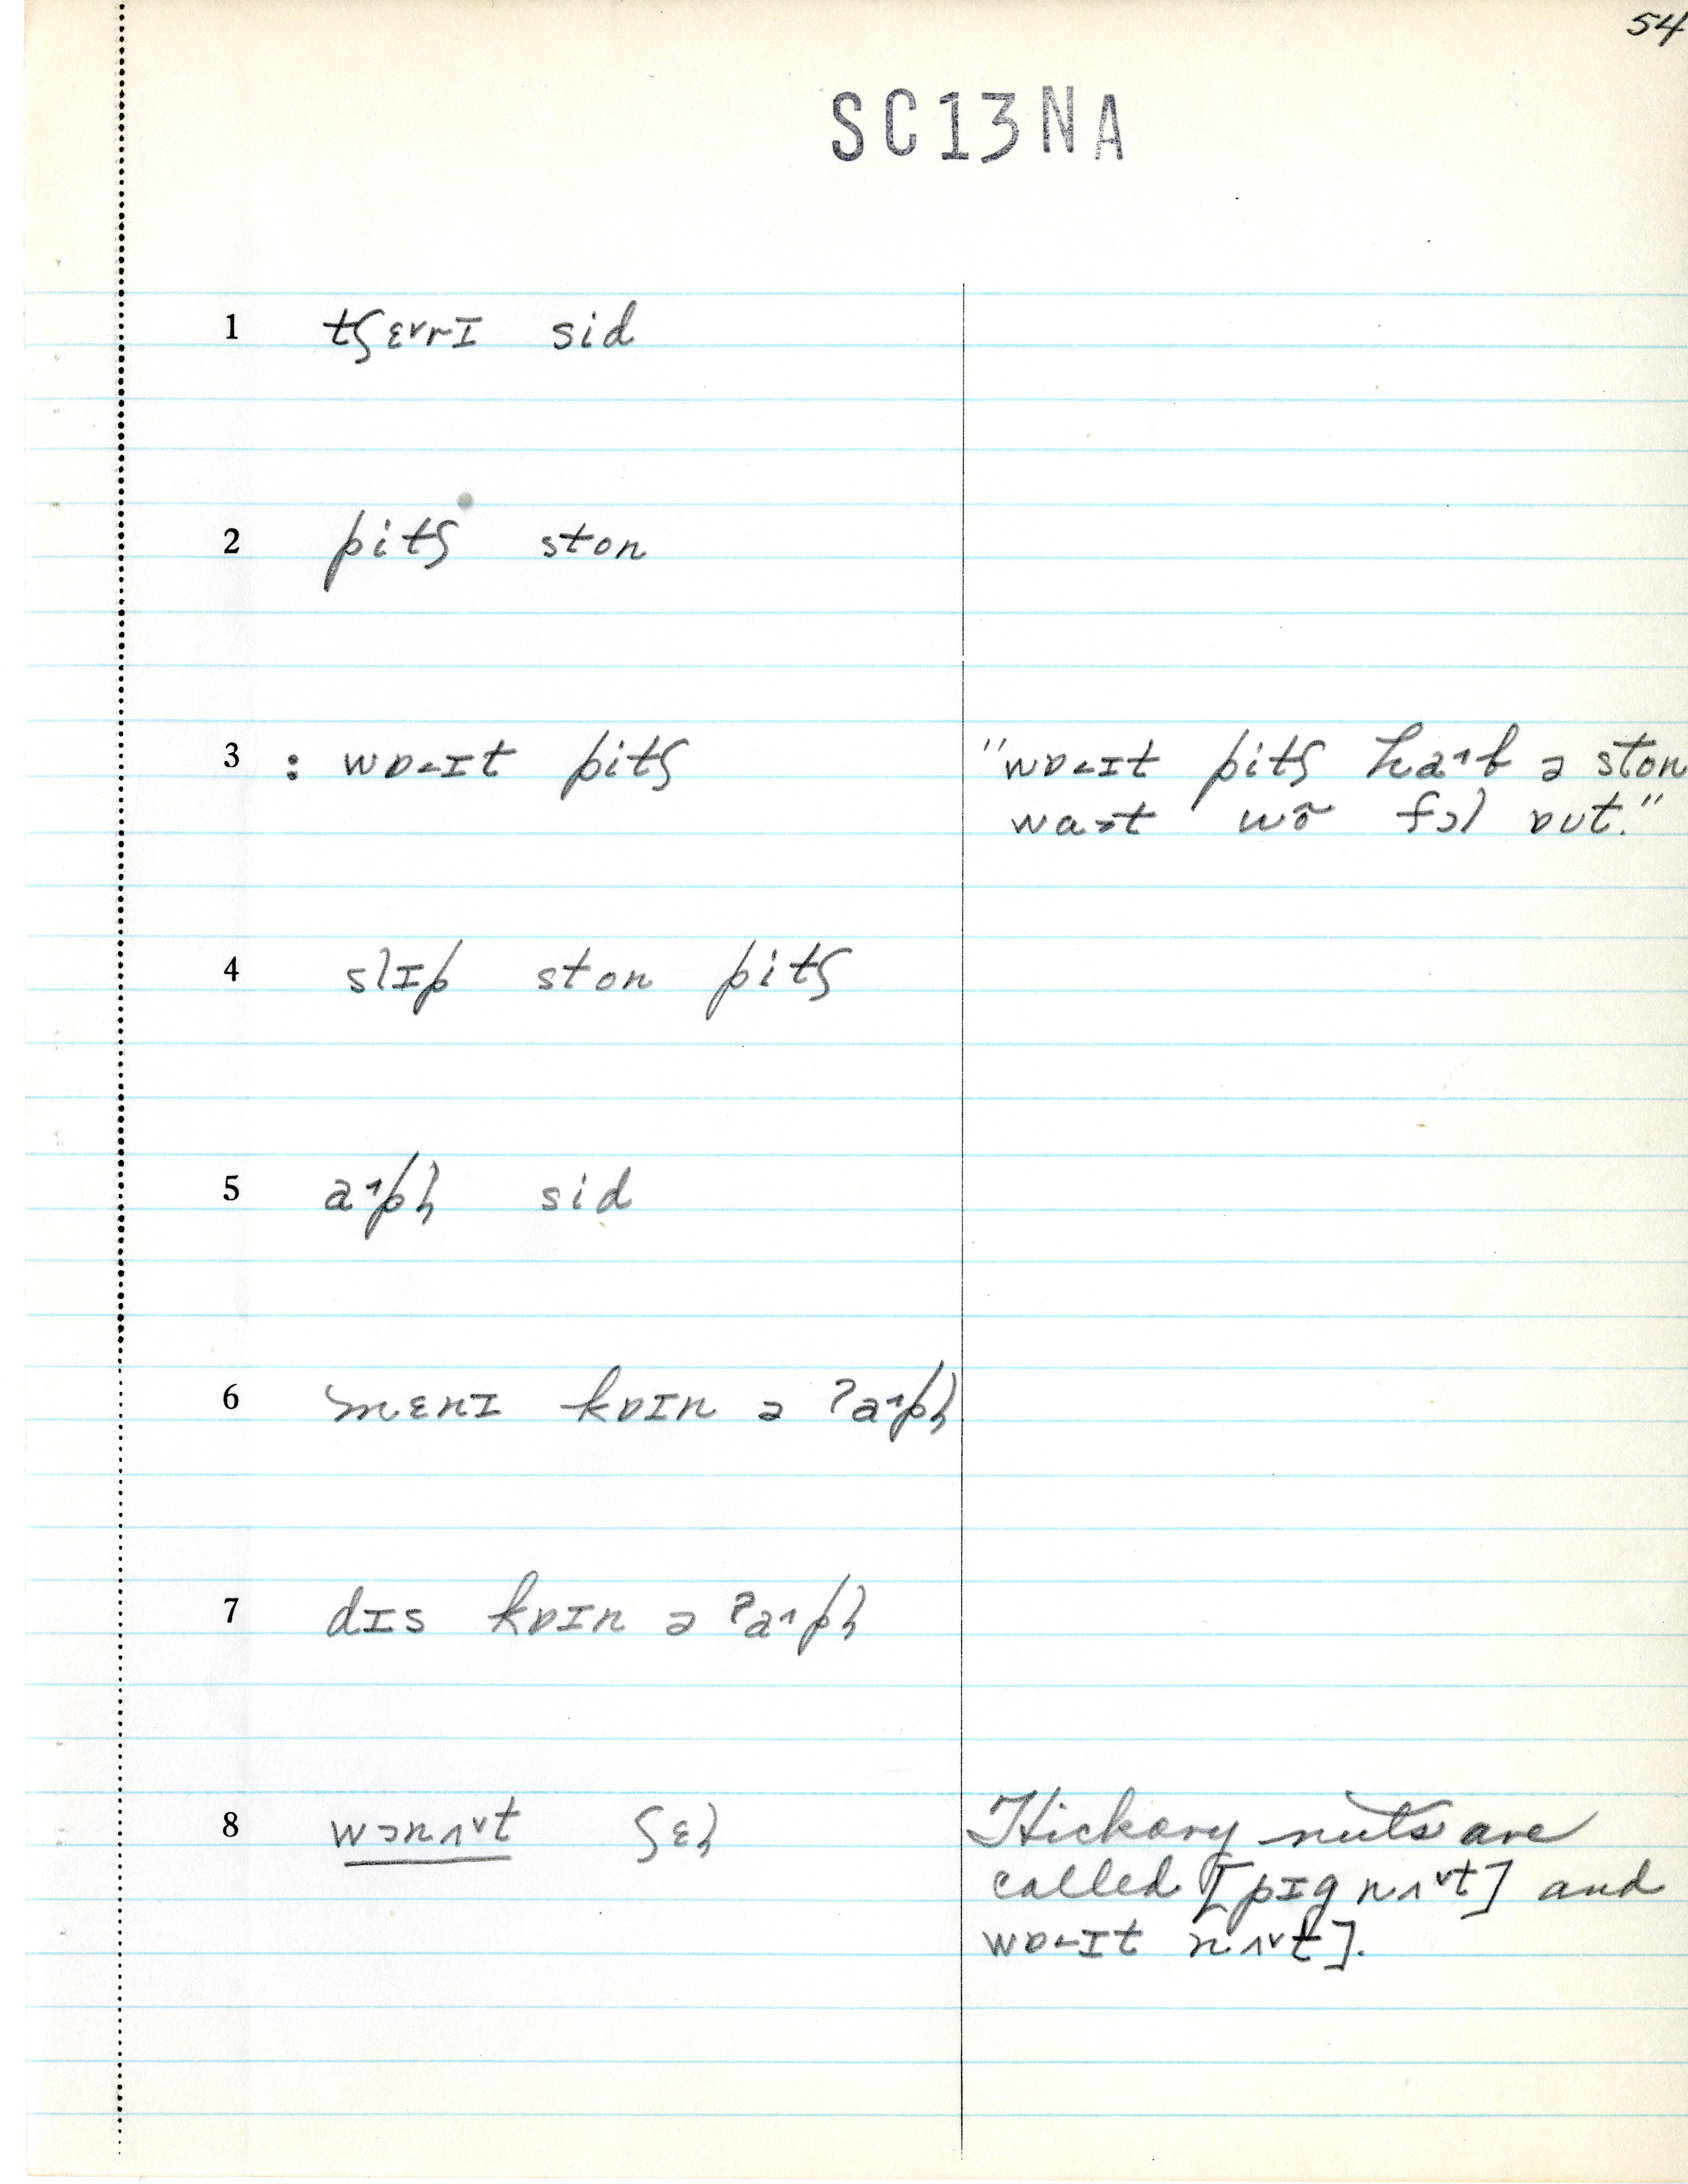 54
SC13NA
1 tʃɛ˅rɪ sid
2 pitʃ ston
3 : wɒ˂ɪt pitʃ "wɒ˂ɪt pitʃ ha˄b ə ston
wa˃t wõ fɔl ɒʊt."
4 slɪp ston pitʃ
5 a˄pɫ sid
6 mɛnɪ kɒɪn ə ʔa˄pɫ
7 dɪs kɒɪn ə ʔa˄pɫ
8 wɔnʌ˅t ʃɛɫ Hickory nuts are
called [pɪg nʌ˅t] and
wɒ˂ɪt nʌ˅t].